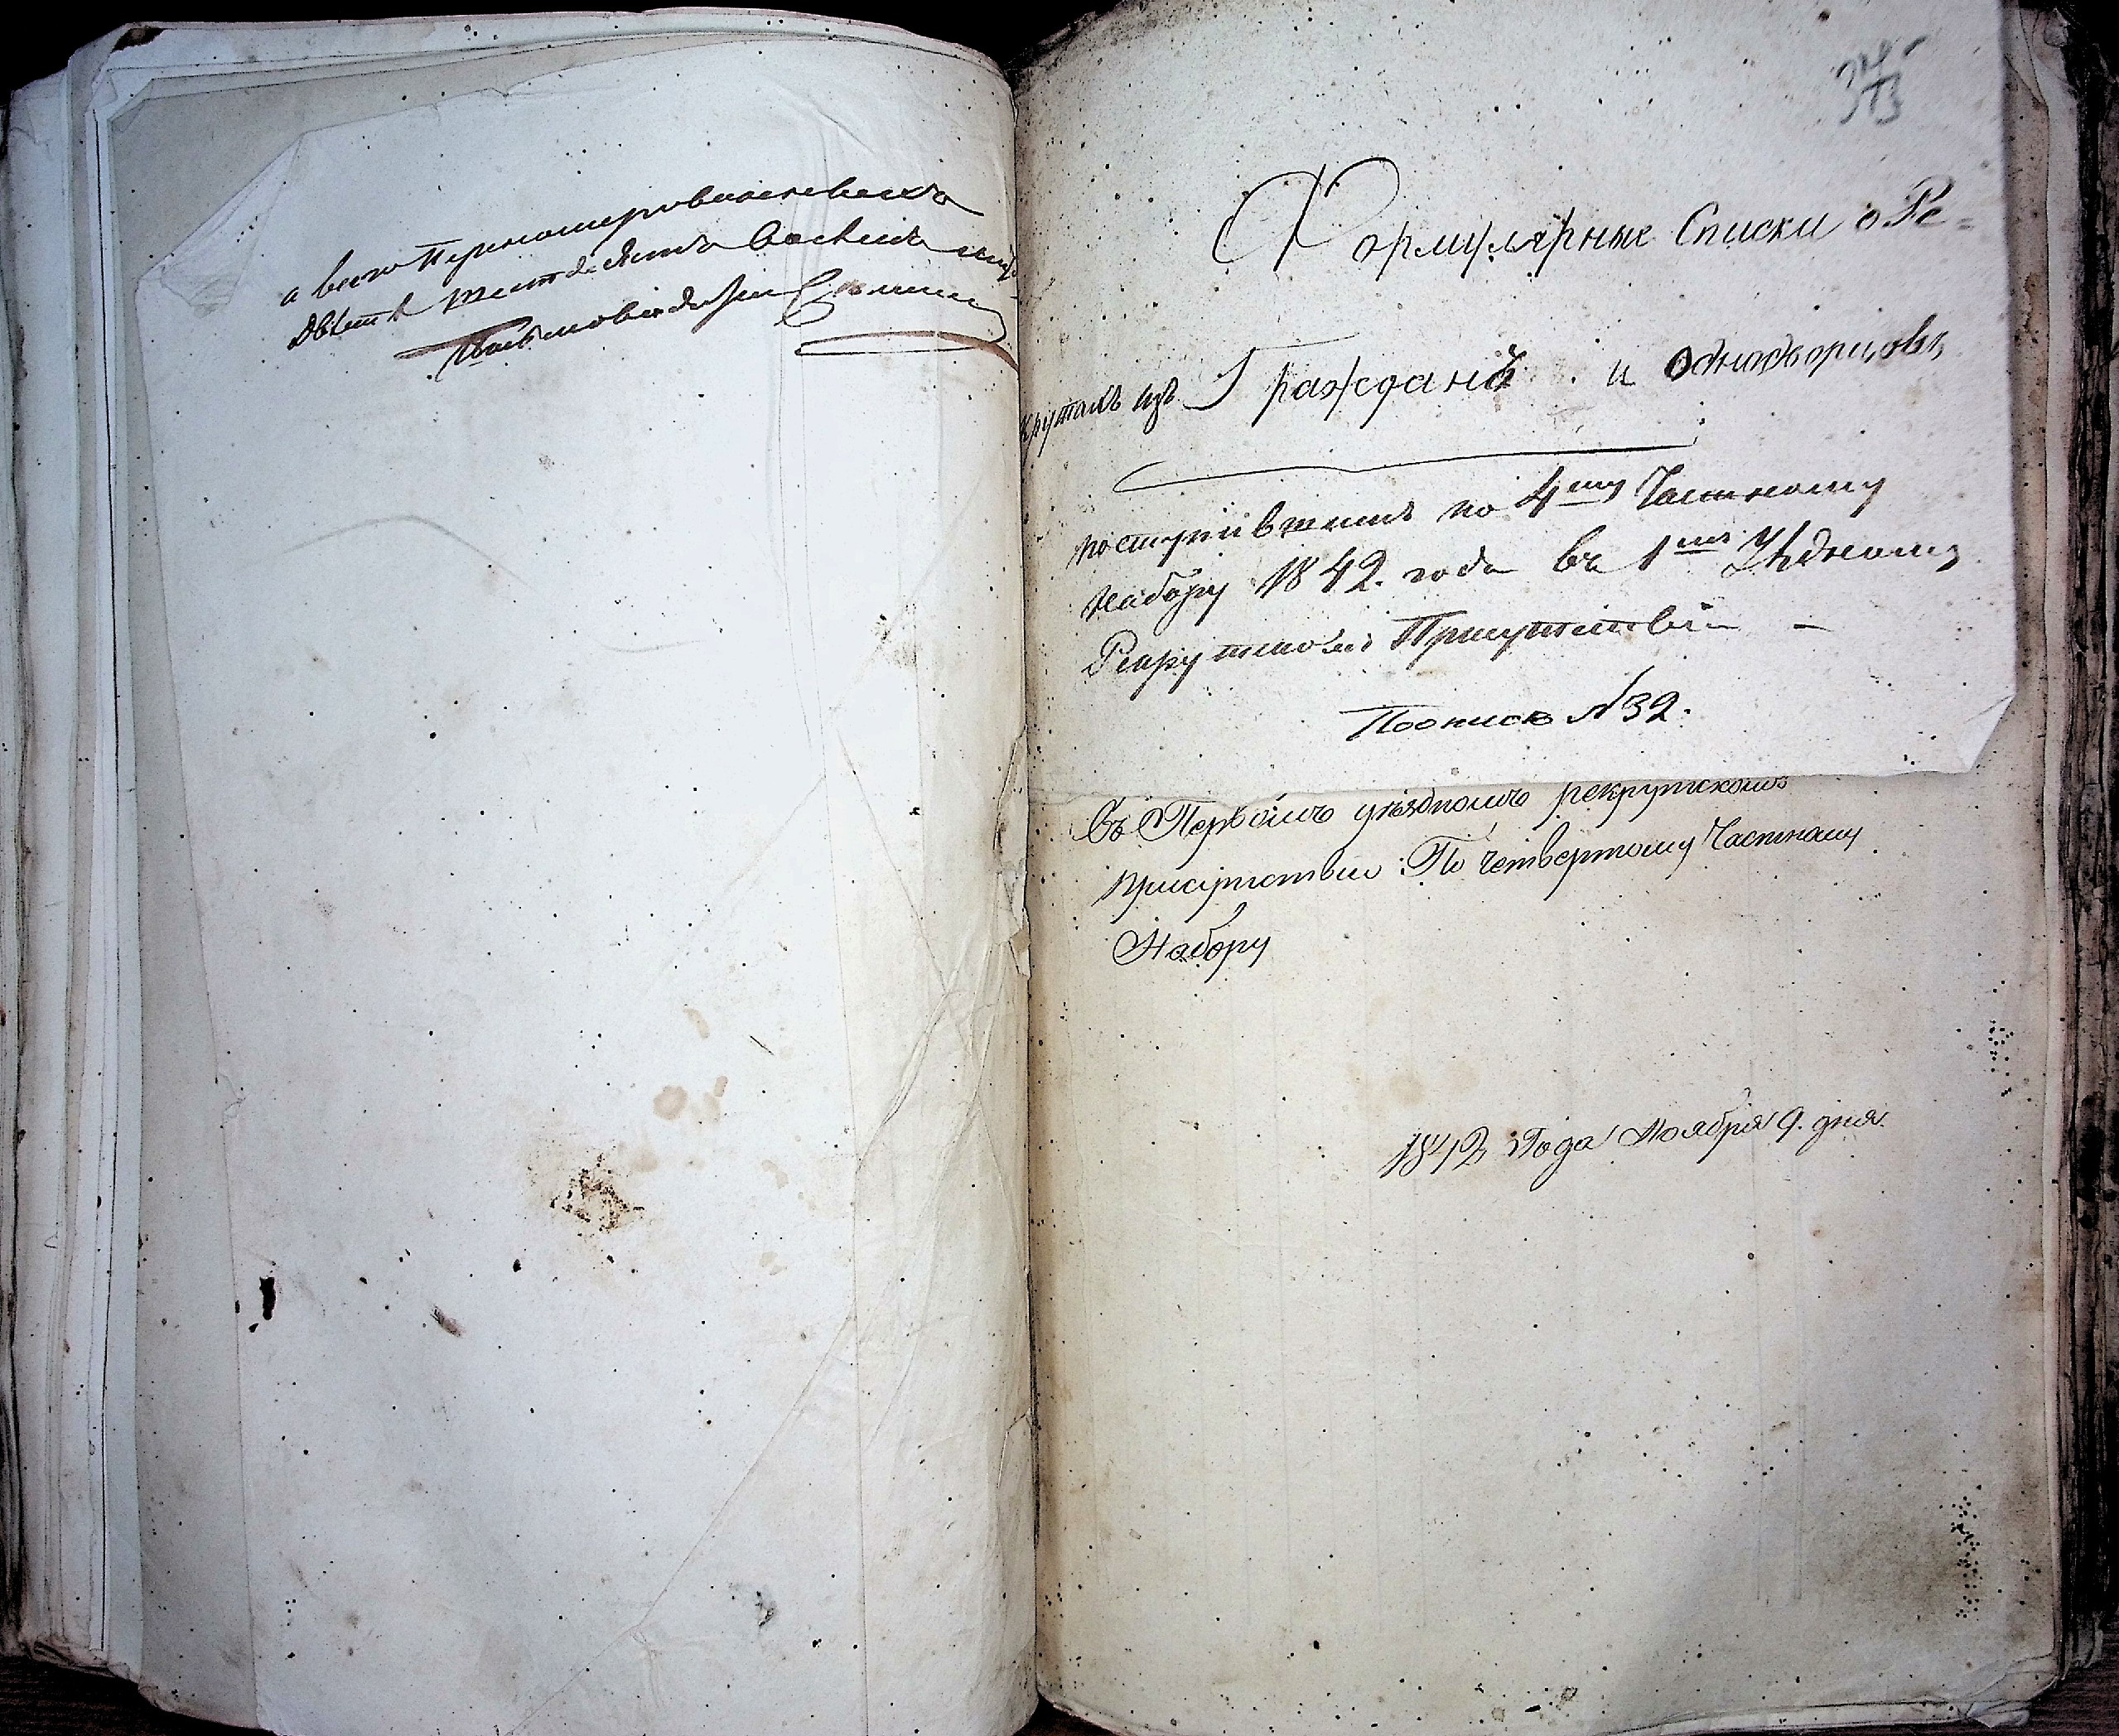 а всего пронумерованныхъ
двѣсти шестьдесятъ восемь
373
Формулярные Списки о Ре=
крутахъ изъ Гражданъ и Однодворцовъ
поступившихъ по 4му Частному
Набору 1842. года въ 1мъ Уѣздномъ
Рекрутскомъ Присутствіи –
По описи №32.
Въ Первомъ уѣздномъ рекрутскомъ
присутствіи По четвертому Частному
Набору
1842 Года Ноября 9. дня